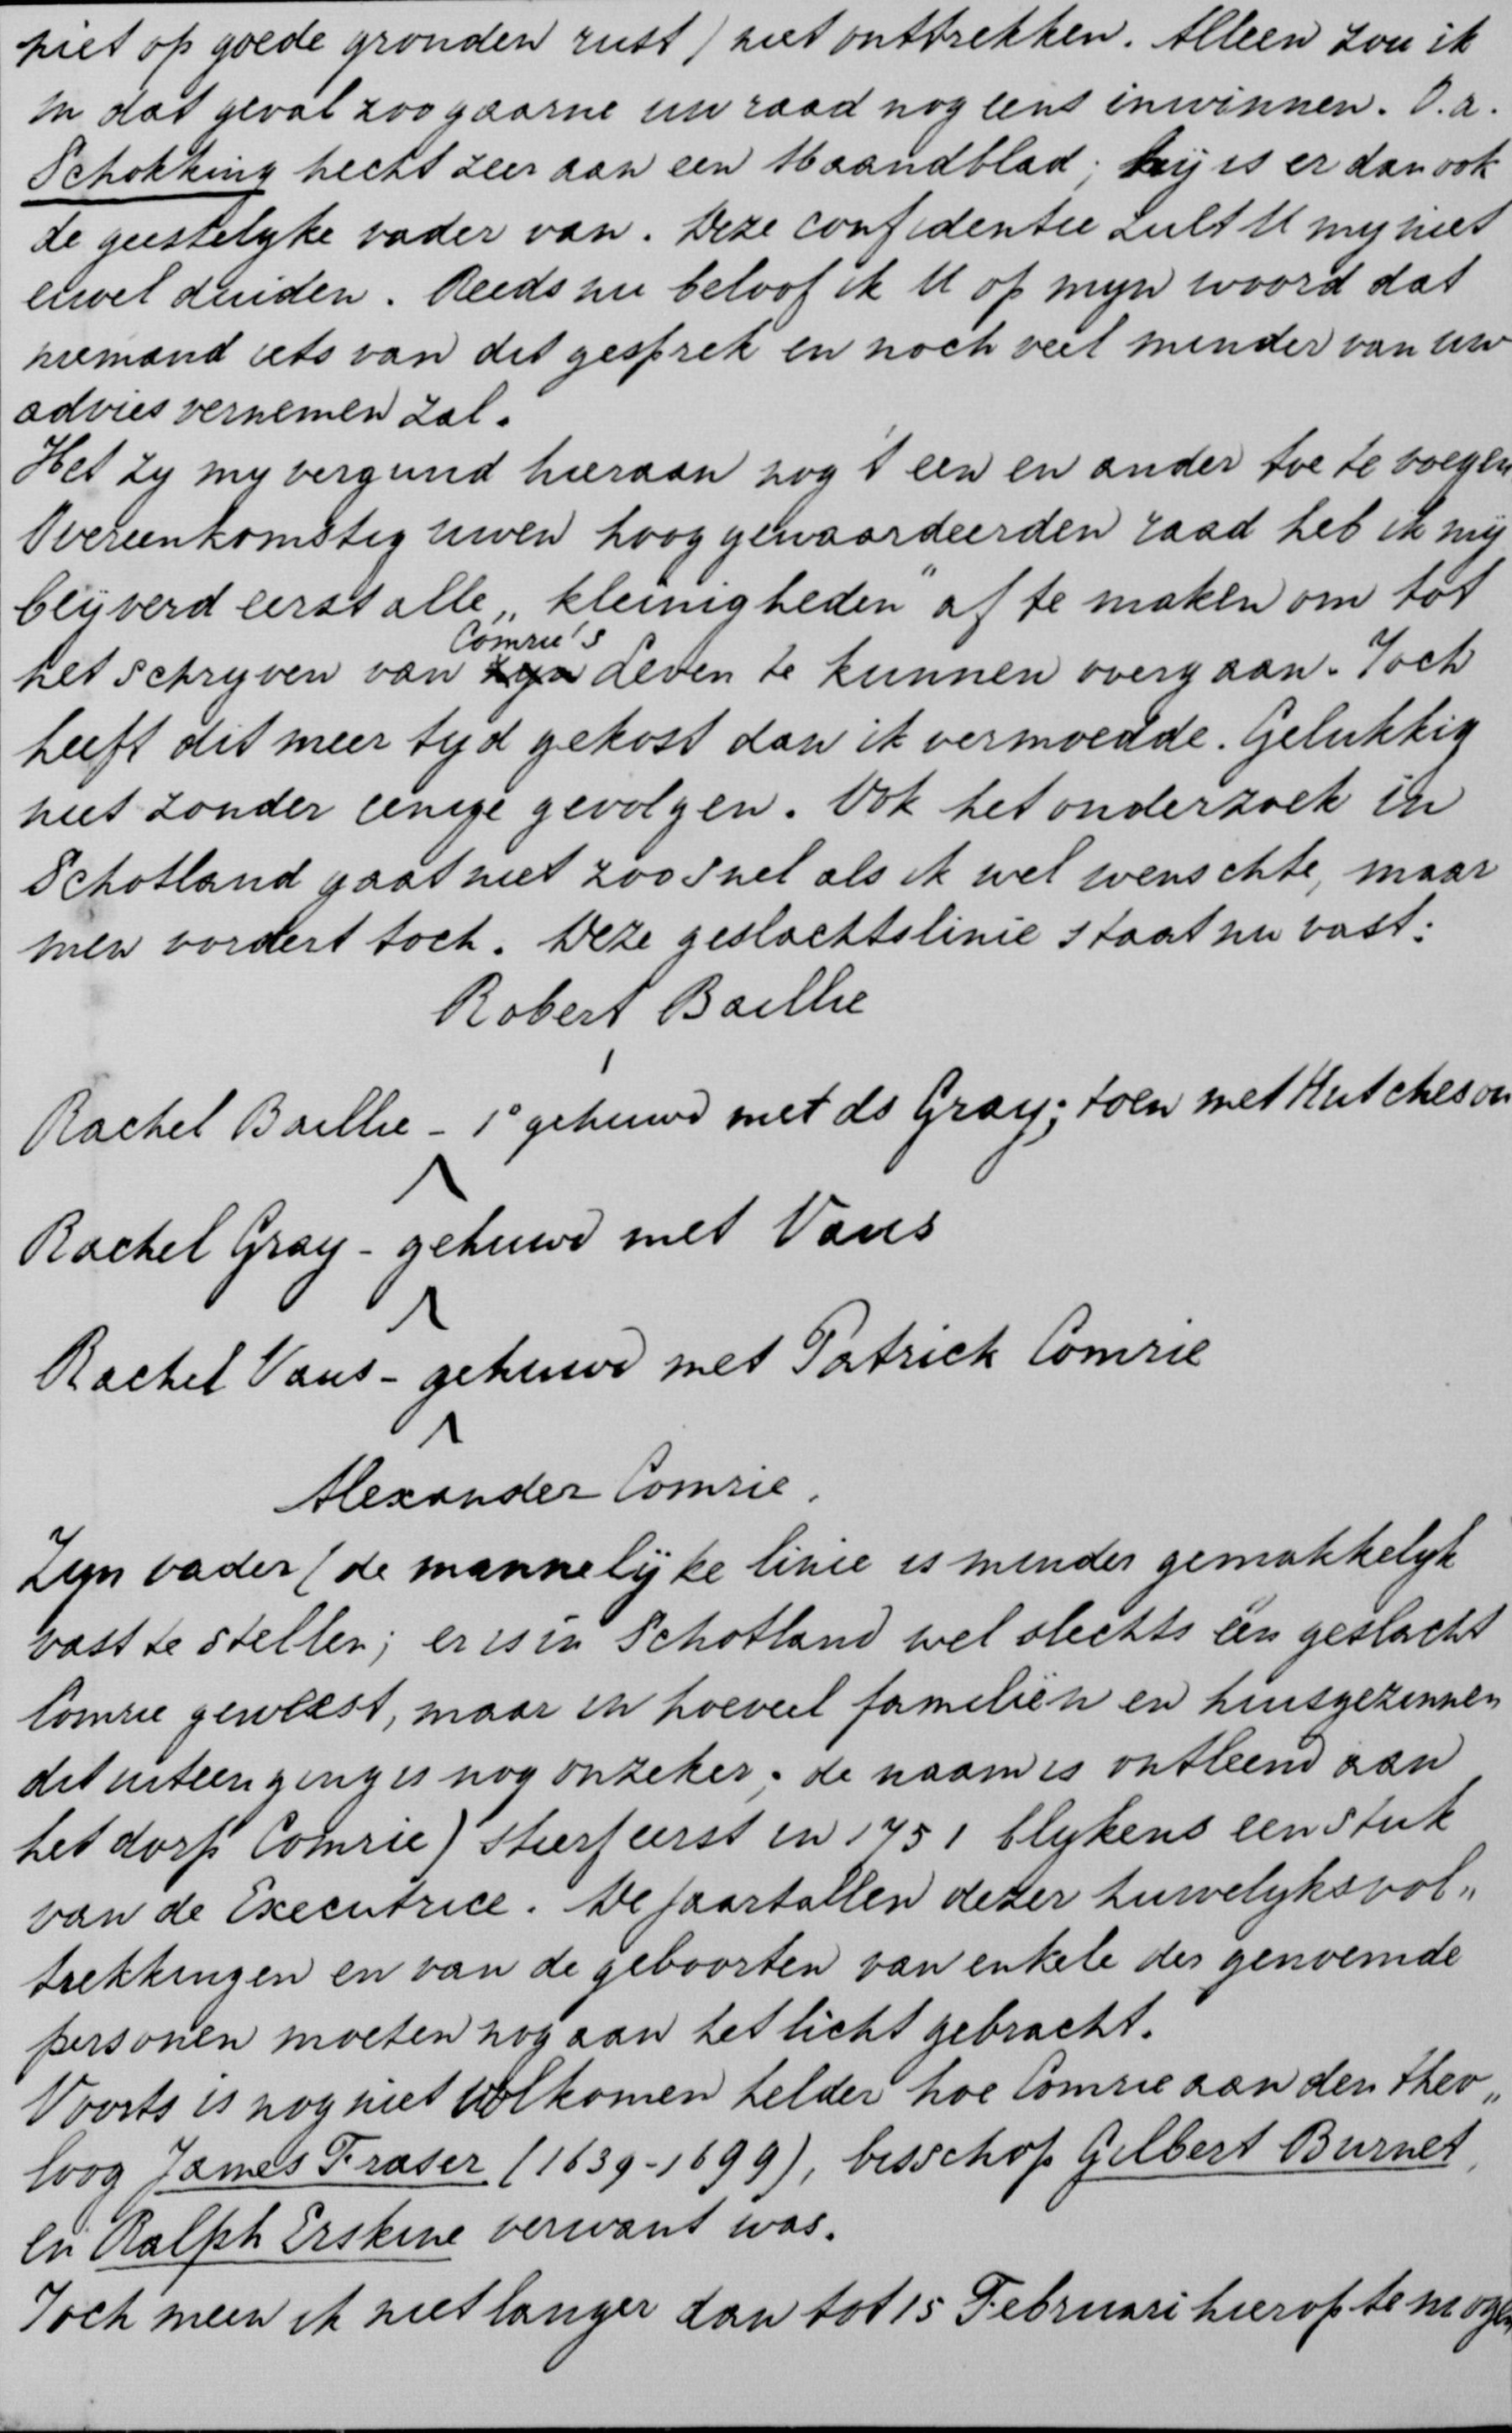 niet op goede gronden rust) niet onttrekken. Alleen zou ik
in dat geval zoo gaarne uw raad nog eens inwinnen. O.a.
Schokking hecht zeer aan een Maandblad; hij is er dan ook
de geestelyke vader van. Deze confidentie zult U my niet
euvel duiden. Reeds nu beloof ik U op myn woord dat
niemand iets van dit gesprek en noch veel minder van uw
advies vernemen zal.
Het zy my vergund hieraan nog 't een en ander toe te voegen
Overeenkomstig uwen hooggewaardeerden raad heb ik mij
beijverd eerst alle „kleinigheden" af te maken om tot
het schryven van zyn Comrie's Leven te kunnen overgaan. Toch
heeft dit meer tyd gekost dan ik vermoedde. Gelukkig
niet zonder eenige gevolgen. Ook het onderzoek in
Schotland gaat niet zoo snel als ik wel wenschte, maar
men vordert toch. Deze geslachtslinie staat nu vast:
Robert Baillie
Rachel Baillie - 1° gehuwd met ds Gray; toen met Hutcheson
Rachel Gray - gehuwd met Vaus
Rachel Vaus - gehuwd met Patrick Comrie
Alexander Comrie.
Zyn vader (de mannelijke linie is minder gemakkelyk
vast te stellen; er is in Schotland wel slechts één geslacht
Comrie geweest, maar in hoeveel familiën en huisgezinnen
dit uiteenging is nog onzeker; de naam is ontleend aan
het dorp Comrie) stierf eerst in 1751 blykens een stuk
van de Executrice. De jaartallen dezer huwelyksvol„
trekkingen en van de geboorten van enkele der genoemde
personen moeten nog aan het licht gebracht.
Voorts is nog niet volkomen helder hoe Comrie aan den theo„
loog James Fraser (1639-1699), bisschop Gilbert Burnet,
en Ralph Erskine verwant was.
Toch meen ik niet langer dan tot 15 Februari hierop te mogen